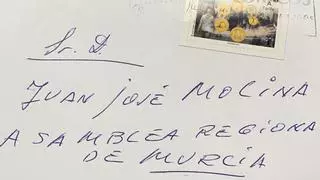 Sr. D.
JUAN JOSÉ MOLINA
ASAMBLEA REGIONA
DE MURCIA